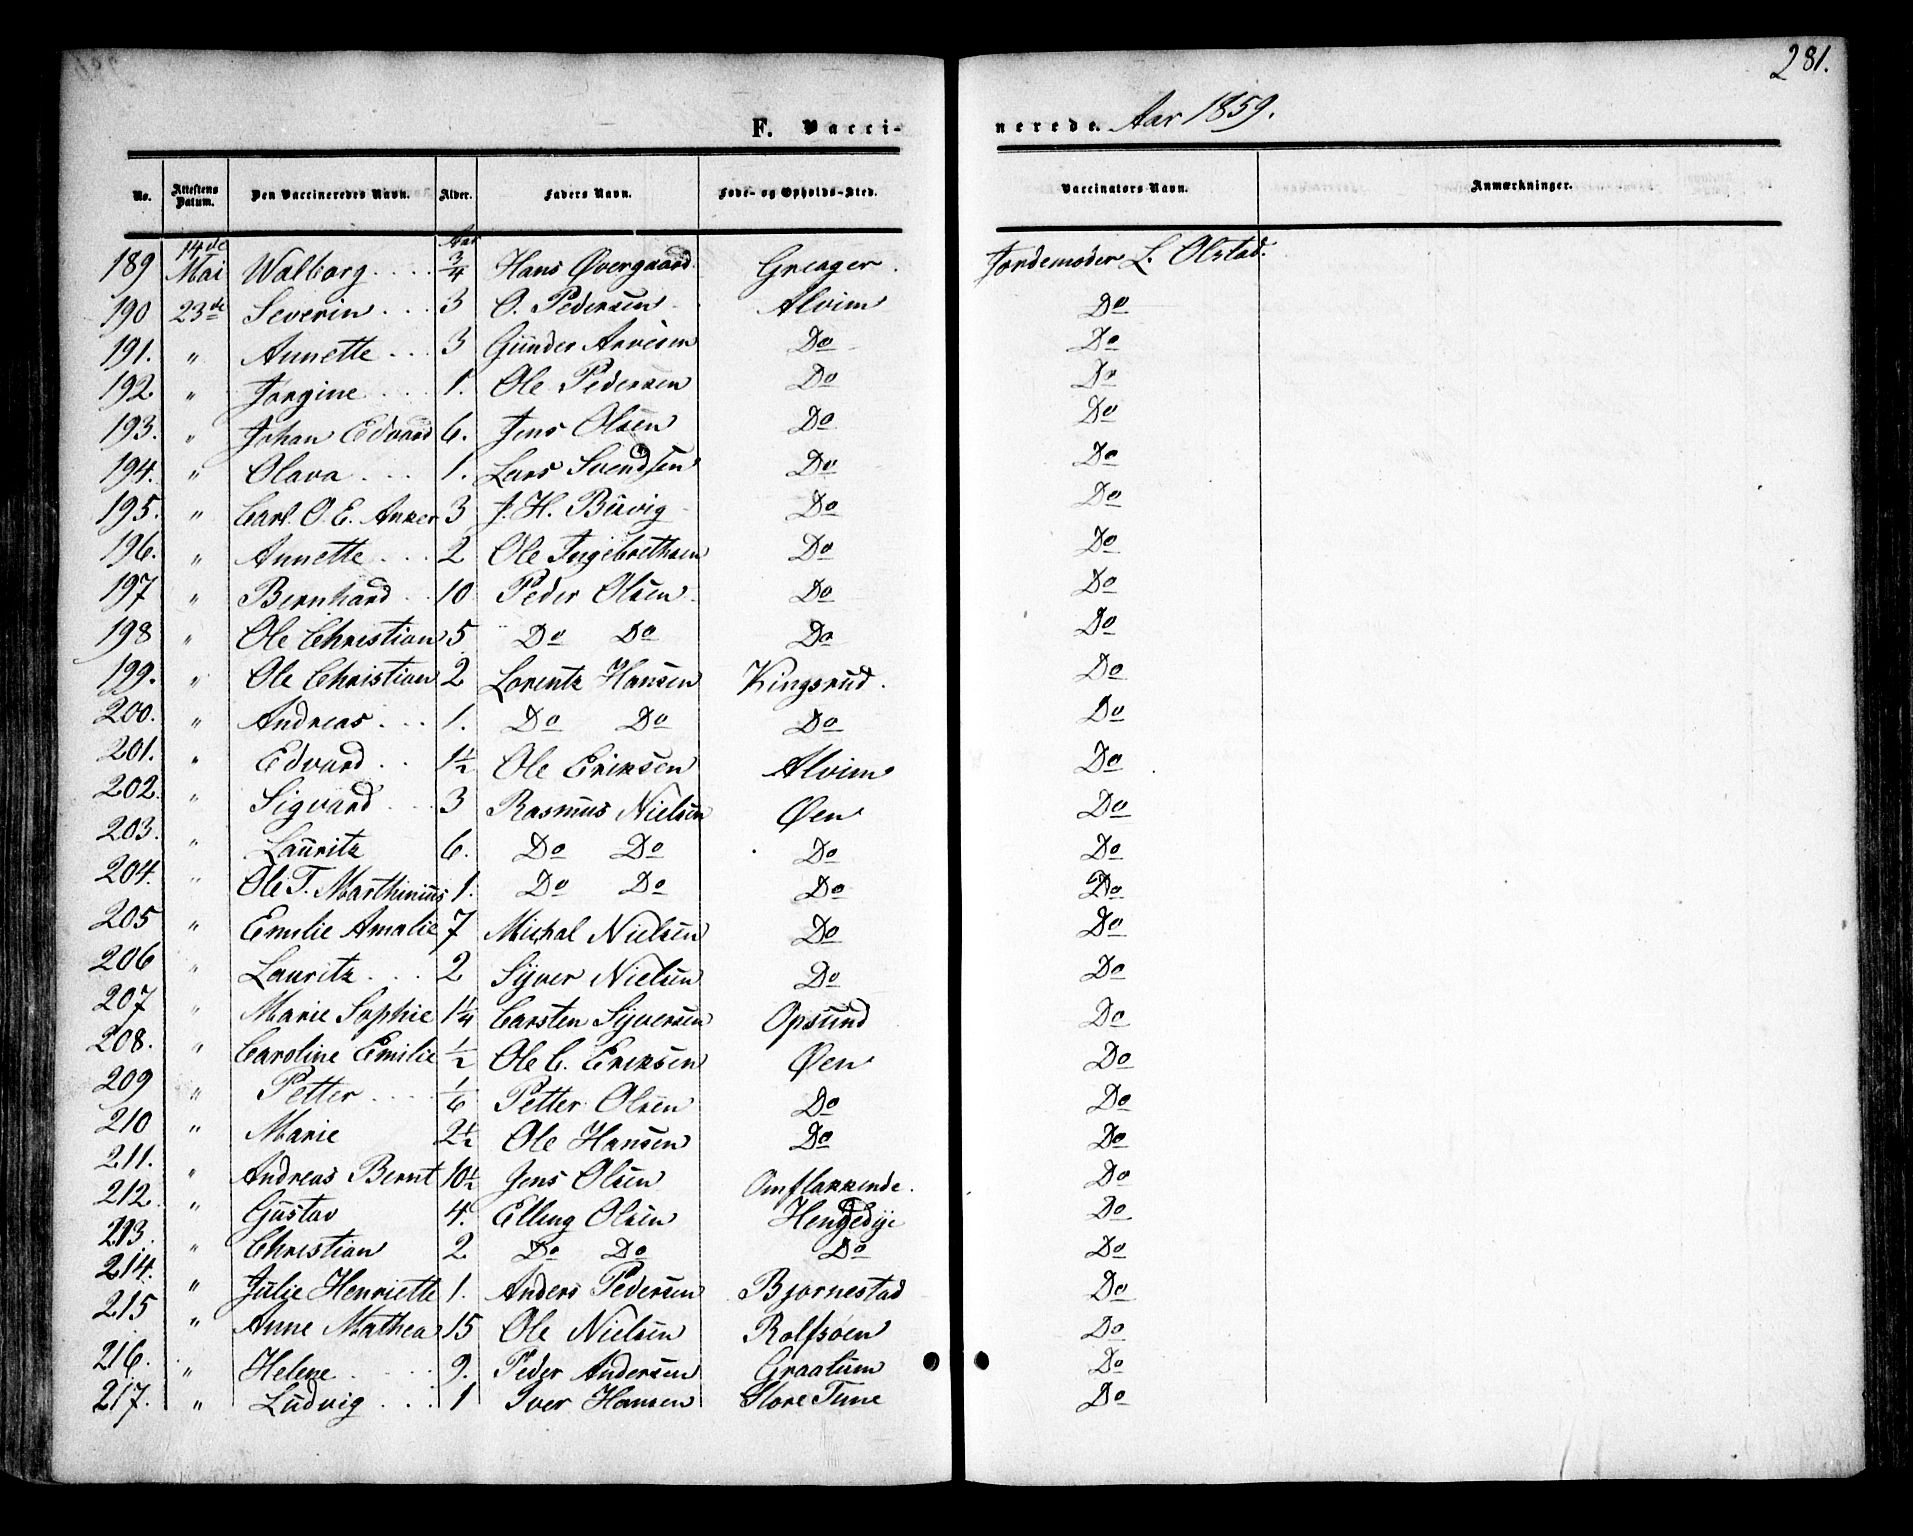 281.
F. Vacci-
nerede. Aar 1859.
No. Attestens Datum. Den Vaccineredes Navn. Alder. Faders Navn. Føde- og Opholds-Sted. Vaccinators Navn. Anmærkninger.
Aar
189 14de Mai Walborg .... 3/4 Hans Øvergaard Greager. Jordemoder L. Olstad.
190 23de Severin ... 3 O. Pedersen Alvim Do
191. " Annette ... 3 Günder Arvesen Do Do
192 " Jorgine .... 1. Ole Pedersen Do Do
193. " Johan Edvard 6. Jens Olsen Do Do
194. " Olava ... 1. Lars Svendsen Do Do
195. " Carl. O. E. Anker 3 J. H. Büvig Do Do
196. " Annette ... 2 Ole Ingebrethsen Do Do
197 " Bernhard .. 10 Peder Olsen Do Do
198 " Ole Christian 5 Do Do Do Do
199. " Ole Christian 2 Lorentz Hansen Kingsrud. Do
200. " Andreas ... 1. Do Do Do Do
201. " Edvard .. 1½ Ole Eriksen Alvim Do
202. " Sigvard ... 3 Rasmus Nielsen Øen Do
203. " Lauritz 6. Do Do Do Do
204. " Ole T. Marthinius 1. Do Do Do Do
205 " Emilie Amalie 7 Michal Nielsen Do Do
206 " Lauritz ... 2 Sÿver Nielsen Do Do
207 " Marie Sophie 1¼ Carsten Sÿversen Opsund Do
208. " Caroline Emilie ½ Ole C. Eriksen Øen Do
209 " Petter .... 1/6 Petter Olsen Do Do
210 " Marie 2½ Ole Hansen Do Do
211. " Andreas Bernt 10½ Jens Olsen Omflakkende. Do
212. " Gustav 4. Elling Olsen Do
213. " Christian 2 Do Do Do Do
214. " Julie Henriette 1. Anders Pedersen Bjornestad Do
215 " Anne Mathea 15 Ole Nielsen Rolfsøen Do
216. " Helene .... 9. Peder Andersen Graatum Do
217. " Ludvig ... 1 Iver Hansen Store Tune Do